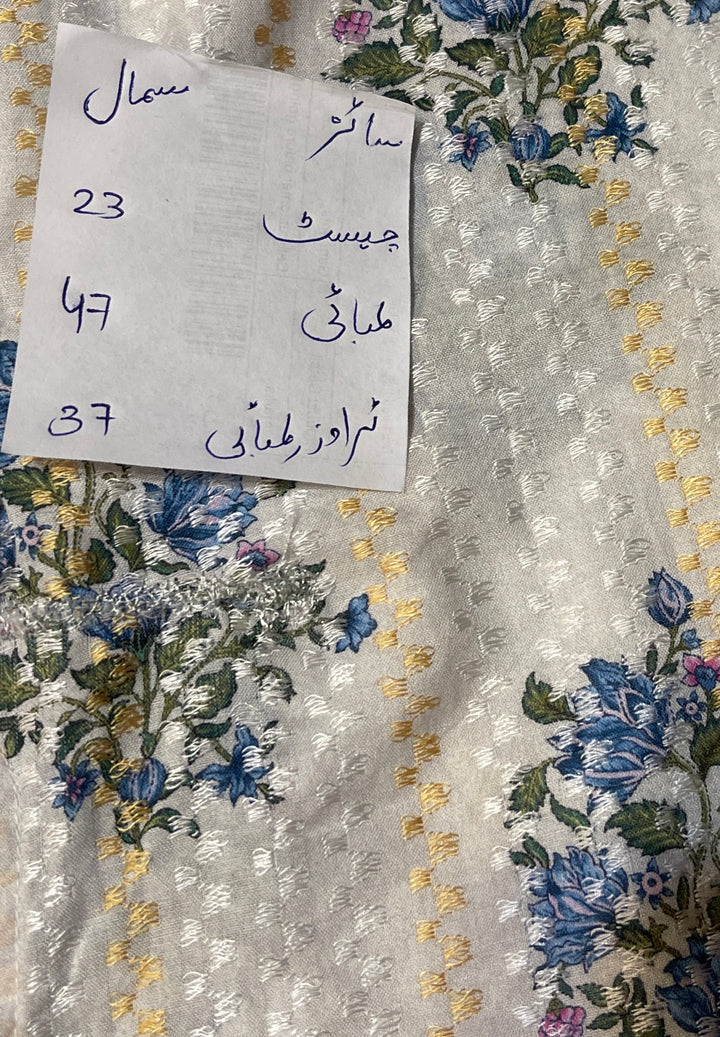 سائز سمال
چیسٹ 23
لمبائی 47
ٹراوزر لمبائی 37